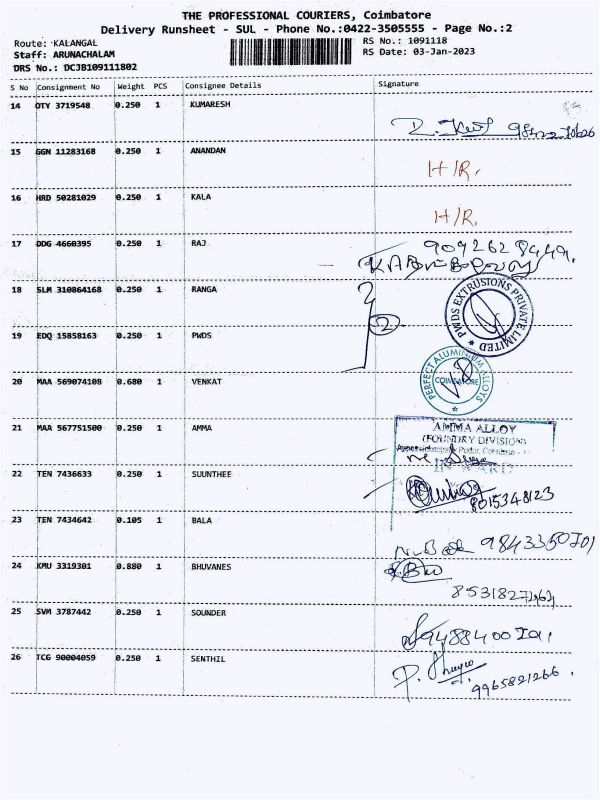 THE PROFESSIONAL COURIERS, Coimbatore
Delivery Runsheet - SUL - Phone No.:0422-3505555 - Page No.:2
Route: KALANGAL
Staff: ARUNACHALAM
DRS No.: DCJB109111802
RS No.: 1091118
RS Date: 03-Jan-2023
S No Consignment No Weight PCS Consignee Details Signature
14 OTY 3719548 0.250 1 KUMARESH
15 GGN 11283168 0.250 1 ANANDAN
H/R.
16 HRD 50281029 0.250 1 KALA
H/R.
17 DDG 4660395 0.250 1 RAJ
18 SLM 310864168 0.250 1 RANGA
PWDS EXTRUSIONS PRIVATE LIMITED
2
19 EDQ 15858163 0.250 1 PWDS
20 MAA 569074108 0.680 1 VENKAT
PERFECT ALUMINIUM ALLOYS
COIMBATORE
21 MAA 567751500 0.250 1 AMMA
AMMA ALLOY
(FOUNDRY DIVISION)
INWARD
22 TEN 7436633 0.250 1 SUUNTHEE
8015348123
23 TEN 7434642 0.105 1 BALA
9843350701
24 KMU 3319301 0.880 1 BHUVANES
25 SVM 3787442 0.250 1 SOUNDER
26 TCG 90004059 0.250 1 SENTHIL
9965821266.